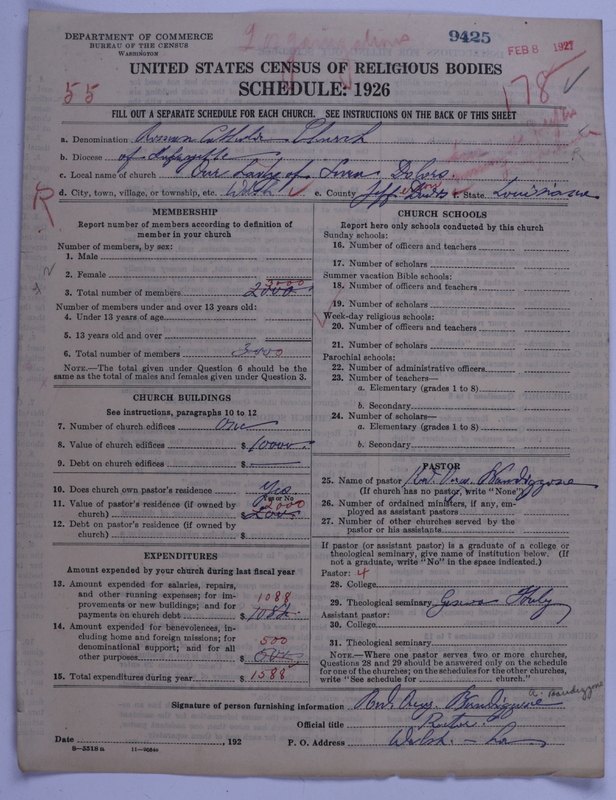 DEPARTMENT OF COMMERCE
BUREAU OF THE CENSUS
WASHINGTON
9425
FEB 8 1927
UNITED STATES CENSUS OF RELIGIOUS BODIES
SCHEDULE: 1926
55
178
FILL OUT A SEPARATE SCHEDULE FOR EACH CHURCH. SEE INSTRUCTIONS ON THE BACK OF THIS SHEET
a. Denomination Roman Catholic Church
b. Diocese of Lafayette
c. Local name of church Our Lady of Seven Dolors.
d. City, town, village, or township, etc. Welsh e. County Jeff Davis f. State Louisiana
R
MEMBERSHIP
Report number of members according to definition of
member in your church
Number of members, by sex:
1. Male
2. Female
3000
3. Total number of members 2000
Number of members under and over 13 years old:
4. Under 13 years of age
5. 13 years old and over
6. Total number of members 3000
NOTE.—The total given under Question 6 should be the
same as the total of males and females given under Question 3.
CHURCH BUILDINGS
See instructions, paragraphs 10 to 12
7. Number of church edifices One
8. Value of church edifices $
9. Debt on church edifices $
10. Does church own pastor's residence Yes
Yes or No
11. Value of pastor's residence (if owned by
church) $ 2000
12. Debt on pastor's residence (if owned by
church) $
EXPENDITURES
Amount expended by your church during last fiscal year
13. Amount expended for salaries, repairs,
and other running expenses; for im-
provements or new buildings; and for
payments on church debt $ 1088
14. Amount expended for benevolences, in-
cluding home and foreign missions; for
denominational support; and for all
other purposes $ 500
15. Total expenditures during year $ 1588
CHURCH SCHOOLS
Report here only schools conducted by this church
Sunday schools:
16. Number of officers and teachers
17. Number of scholars
Summer vacation Bible schools:
18. Number of officers and teachers
19. Number of scholars
Week-day religious schools:
20. Number of officers and teachers
21. Number of scholars
Parochial schools:
22. Number of administrative officers
23. Number of teachers—
a. Elementary (grades 1 to 8)
b. Secondary
24. Number of scholars—
a. Elementary (grades 1 to 8)
b. Secondary
PASTOR
25. Name of pastor
(If church has no pastor, write "None")
26. Number of ordained ministers, if any, em-
ployed as assistant pastors
27. Number of other churches served by the
pastor or his assistants
If pastor (or assistant pastor) is a graduate of a college or
theological seminary, give name of institution below. (If
not a graduate, write "No" in the space indicated.)
Pastor: 4
28. College
29. Theological seminary Italy
Assistant pastor:
30. College
31. Theological seminary
NOTE.—Where one pastor serves two or more churches,
Questions 28 and 29 should be answered only on the schedule
for one of the churches; on the schedules for the other churches,
write "See schedule for church."
Signature of person furnishing information
Official title Rector.
Date , 192 P. O. Address Welsh - La